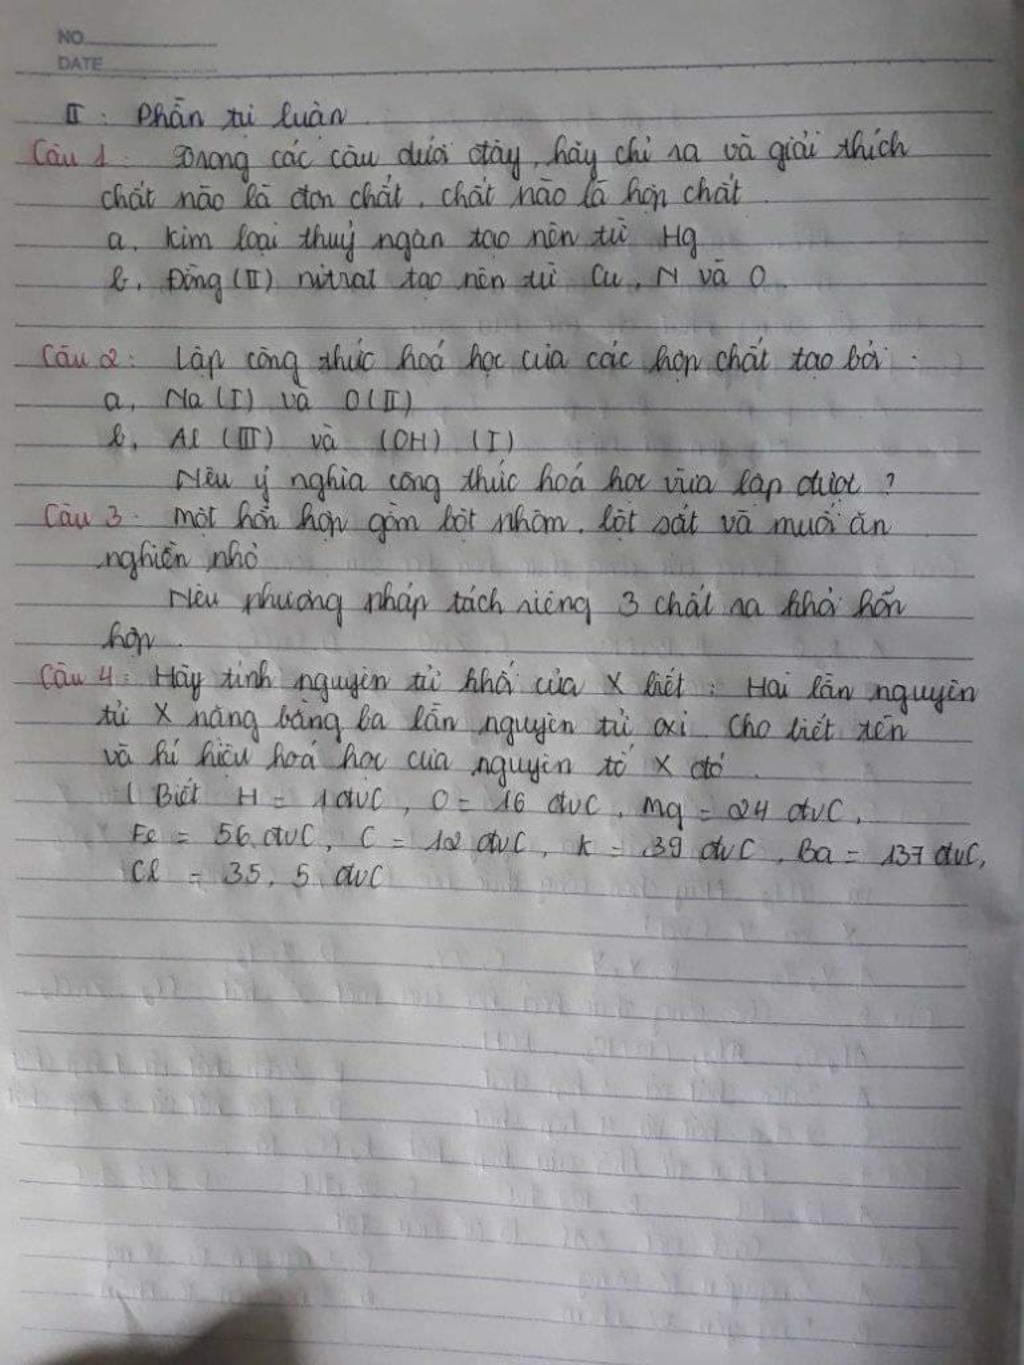 NO
DATE
II : Phần tự luận
Câu 1 : Trong các câu dưới đây, hãy chỉ ra và giải thích
chất nào là đơn chất, chất nào là hợp chất.
a, Kim loại thuỷ ngân tạo nên từ Hg
b, Đồng (II) nitrat tạo nên từ Cu, N và O.
Câu 2 : Lập công thức hoá học của các hợp chất tạo bởi :
a, Na (I) và O (II)
b, Al (III) và (OH) (I)
Nêu ý nghĩa công thức hoá học vừa lập được ?
Câu 3 : Một hỗn hợp gồm bột nhôm, bột sắt và muối ăn
nghiền nhỏ
Nêu phương pháp tách riêng 3 chất ra khỏi hỗn
hợp.
Câu 4 : Hãy tính nguyên tử khối của X biết : Hai lần nguyên
tử X nặng bằng ba lần nguyên tử oxi. Cho biết tên
và kí hiệu hoá học của nguyên tố X đó.
( Biết H = 1 đvC, O = 16 đvC, Mg = 24 đvC,
Fe = 56 đvC, C = 12 đvC, K = 39 đvC, Ba = 137 đvC,
Cl = 35,5 đvC